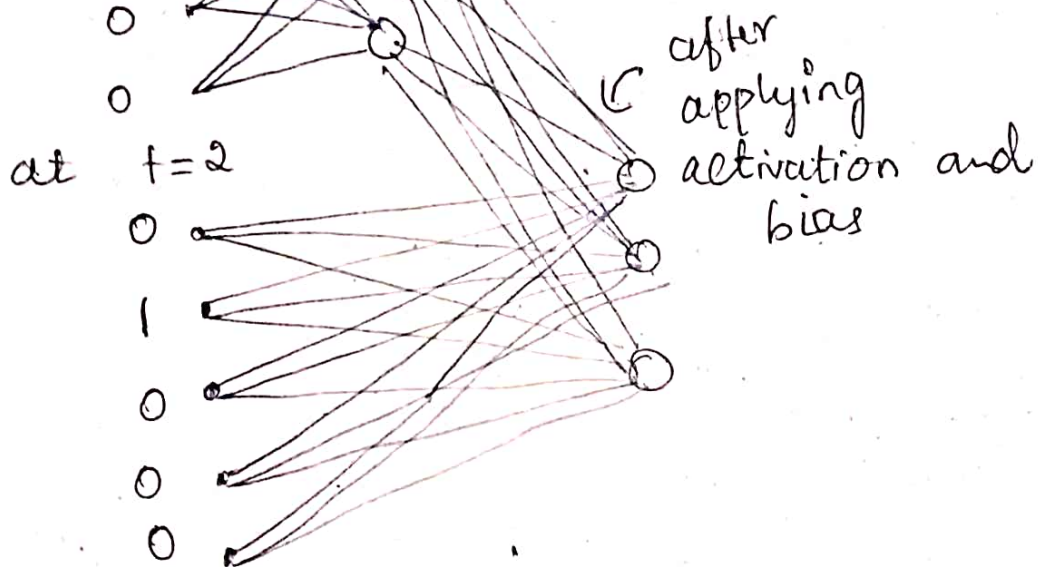 0
0
after
applying
activation and
bias
at t=2
0
1
0
0
0